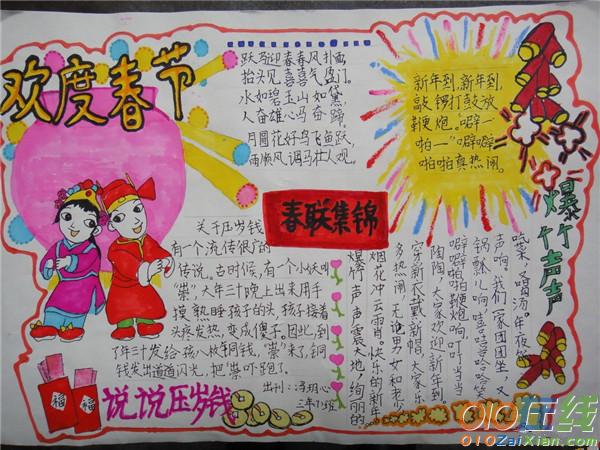 欢度春节
跃马迎春春风扑面
抬头见喜喜气盈门。
水如碧玉山如黛
人奋雄心马奋蹄
月圆花好鸟飞鱼跃
雨顺风调马壮人欢
新年到,新年到,
敲锣打鼓放
鞭炮。"噼一
啪一""噼噼
啪啪真热闹。
春联集锦
爆竹声声
关于压岁钱
有一个流传很广的
传说,古时候,有一个小妖叫
"祟",大年三十晚上出来用手
摸熟睡孩子的头,孩子接着
头疼发热,变成傻子。因此,到
了年三十发给孩八枚铜钱,"祟"来了,铜
钱发出道道闪光,把"祟"吓跑了。
说说压岁钱
福
福
出刊:
三年1班
吃菜,又喝汤。年夜饭
声响。我们一家团团坐,又
锅瓢儿响,哇哇哈哈笑
噼噼啪啪鞭炮响,叮叮当当
陶陶,大家欢迎新年到
穿新衣戴新帽,大家乐
多热闹,无论男女和老少
烟花冲云霄。快乐的新年
爆竹声声震大地,绚丽的
010在线
010ZaiXian.com